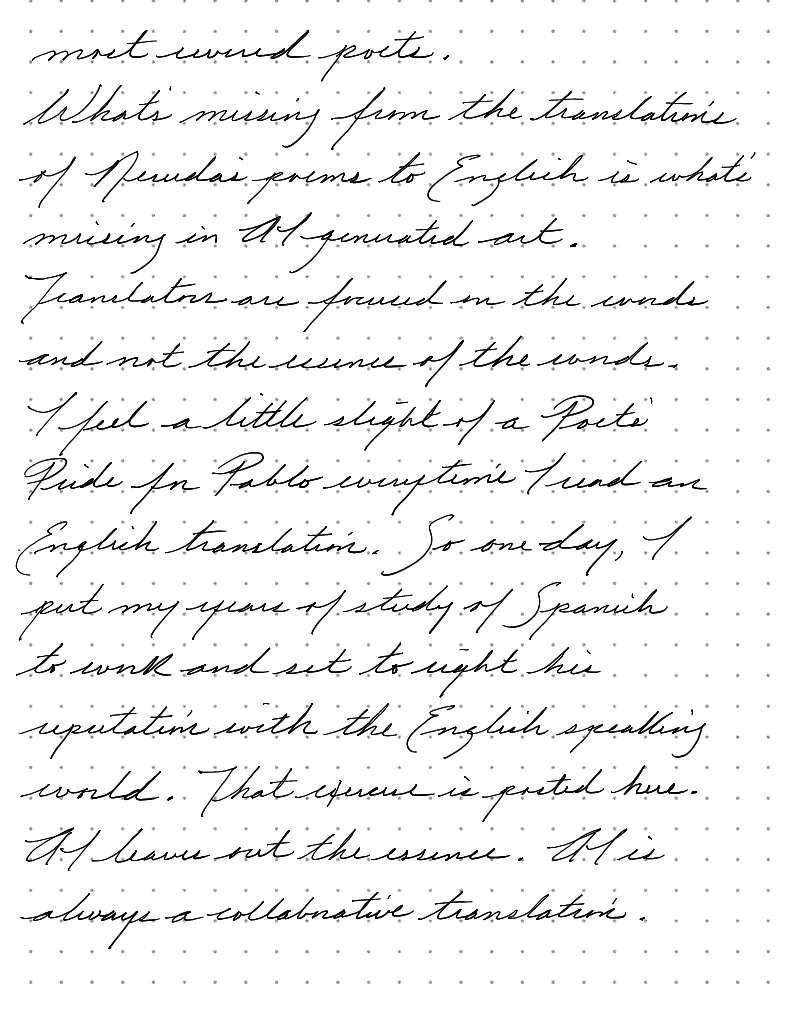 most revered poets.
What's missing from the translations
of Neruda's poems to English is what's
missing in AI generated art.
Translators are focused on the words
and not the essence of the words.
I feel a little slight of a Poet's
Pride for Pablo everytime I read an
English translation. So one day, I
put my years of study of Spanish
to work and set to right his
reputation with the English speaking
world. That exercise is posted here.
AI leaves out the essence. AI is
always a collaborative translation.